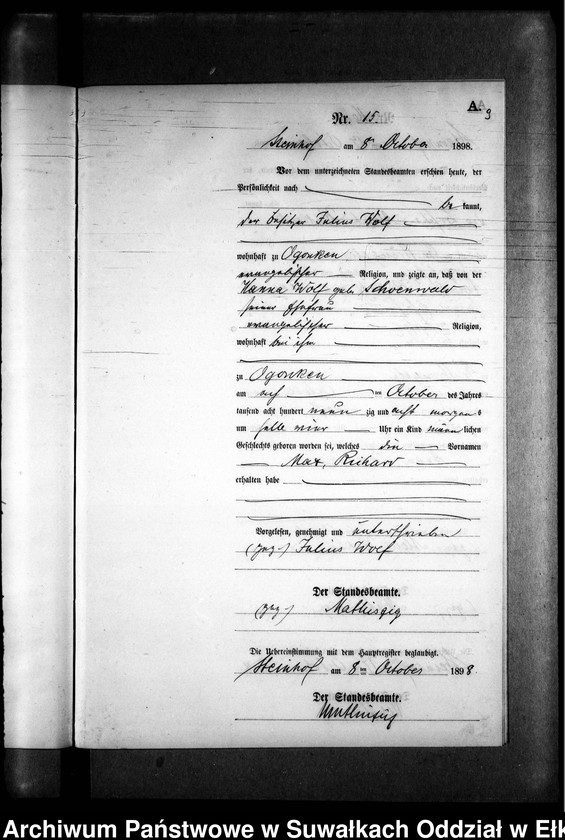 A.
9
Nr. 15.
Steinhof am 8ten October 1898.
Vor dem unterzeichneten Standesbeamten erschien heute, der
Persönlichkeit nach
be kannt,
der Besitzer Julius Wolf
wohnhaft zu Ogonken
evangelischer Religion, und zeigte an, daß von der
Hanna Wolf geb. Schoenwald
seiner Ehefrau
evangelischer Religion,
wohnhaft bei ihm
zu Ogonken
am im October des Jahres
tausend acht hundert neun zig und acht morgen s
um halb vier Uhr ein Kind männ lichen
Geschlechts geboren worden sei, welches die Vornamen
Max, Richard
erhalten habe
Vorgelesen, genehmigt und unterschrieben
(gez.) Julius Wolf
Der Standesbeamte.
(gez.)
Die Uebereinstimmung mit dem Hauptregister beglaubigt.
Steinhof am 8ten October 1898.
Der Standesbeamte.
Archiwum Państwowe w Suwałkach Oddział w Ełk